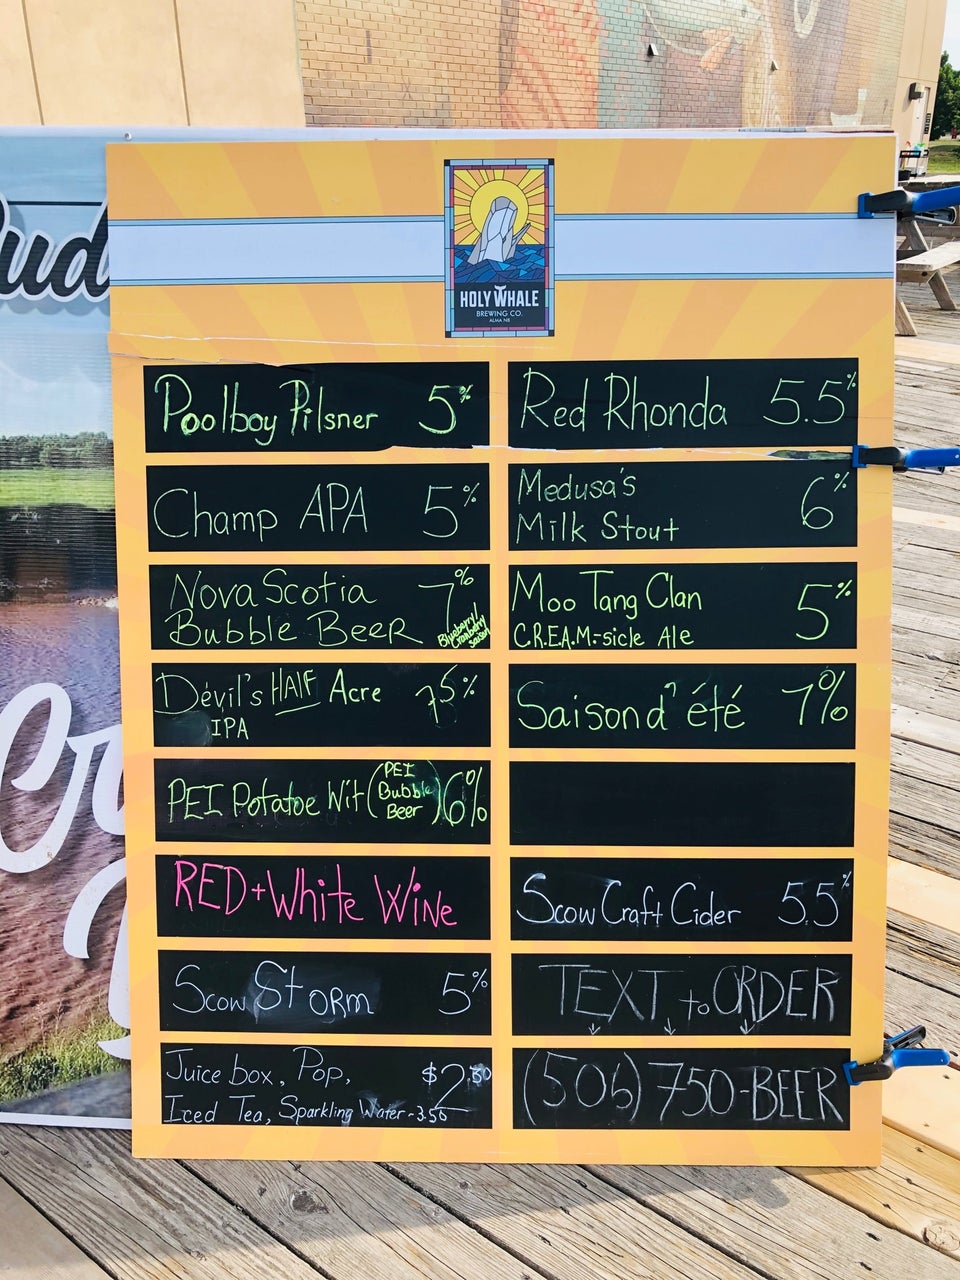 HOLY WHALE
BREWING CO.
ALMA NB
Poolboy Pilsner 5%
Champ APA 5%
Nova Scotia 7%
Bubble Beer
Blueberry/
Cranberry
Saison
Devil's HALF Acre 7.5%
IPA
PEI Potatoe Wit (PEI Bubble Beer) 6%
RED + White Wine
Scow Storm 5%
Juice box, Pop, $2.50
Iced Tea, Sparkling Water - 3.50
Red Rhonda 5.5%
Medusa's 6%
Milk Stout
Moo Tang Clan 5%
C.R.E.A.M.-sicle Ale
Saison d' été 7%
Scow Craft Cider 5.5%
TEXT to ORDER
(506) 750-BEER